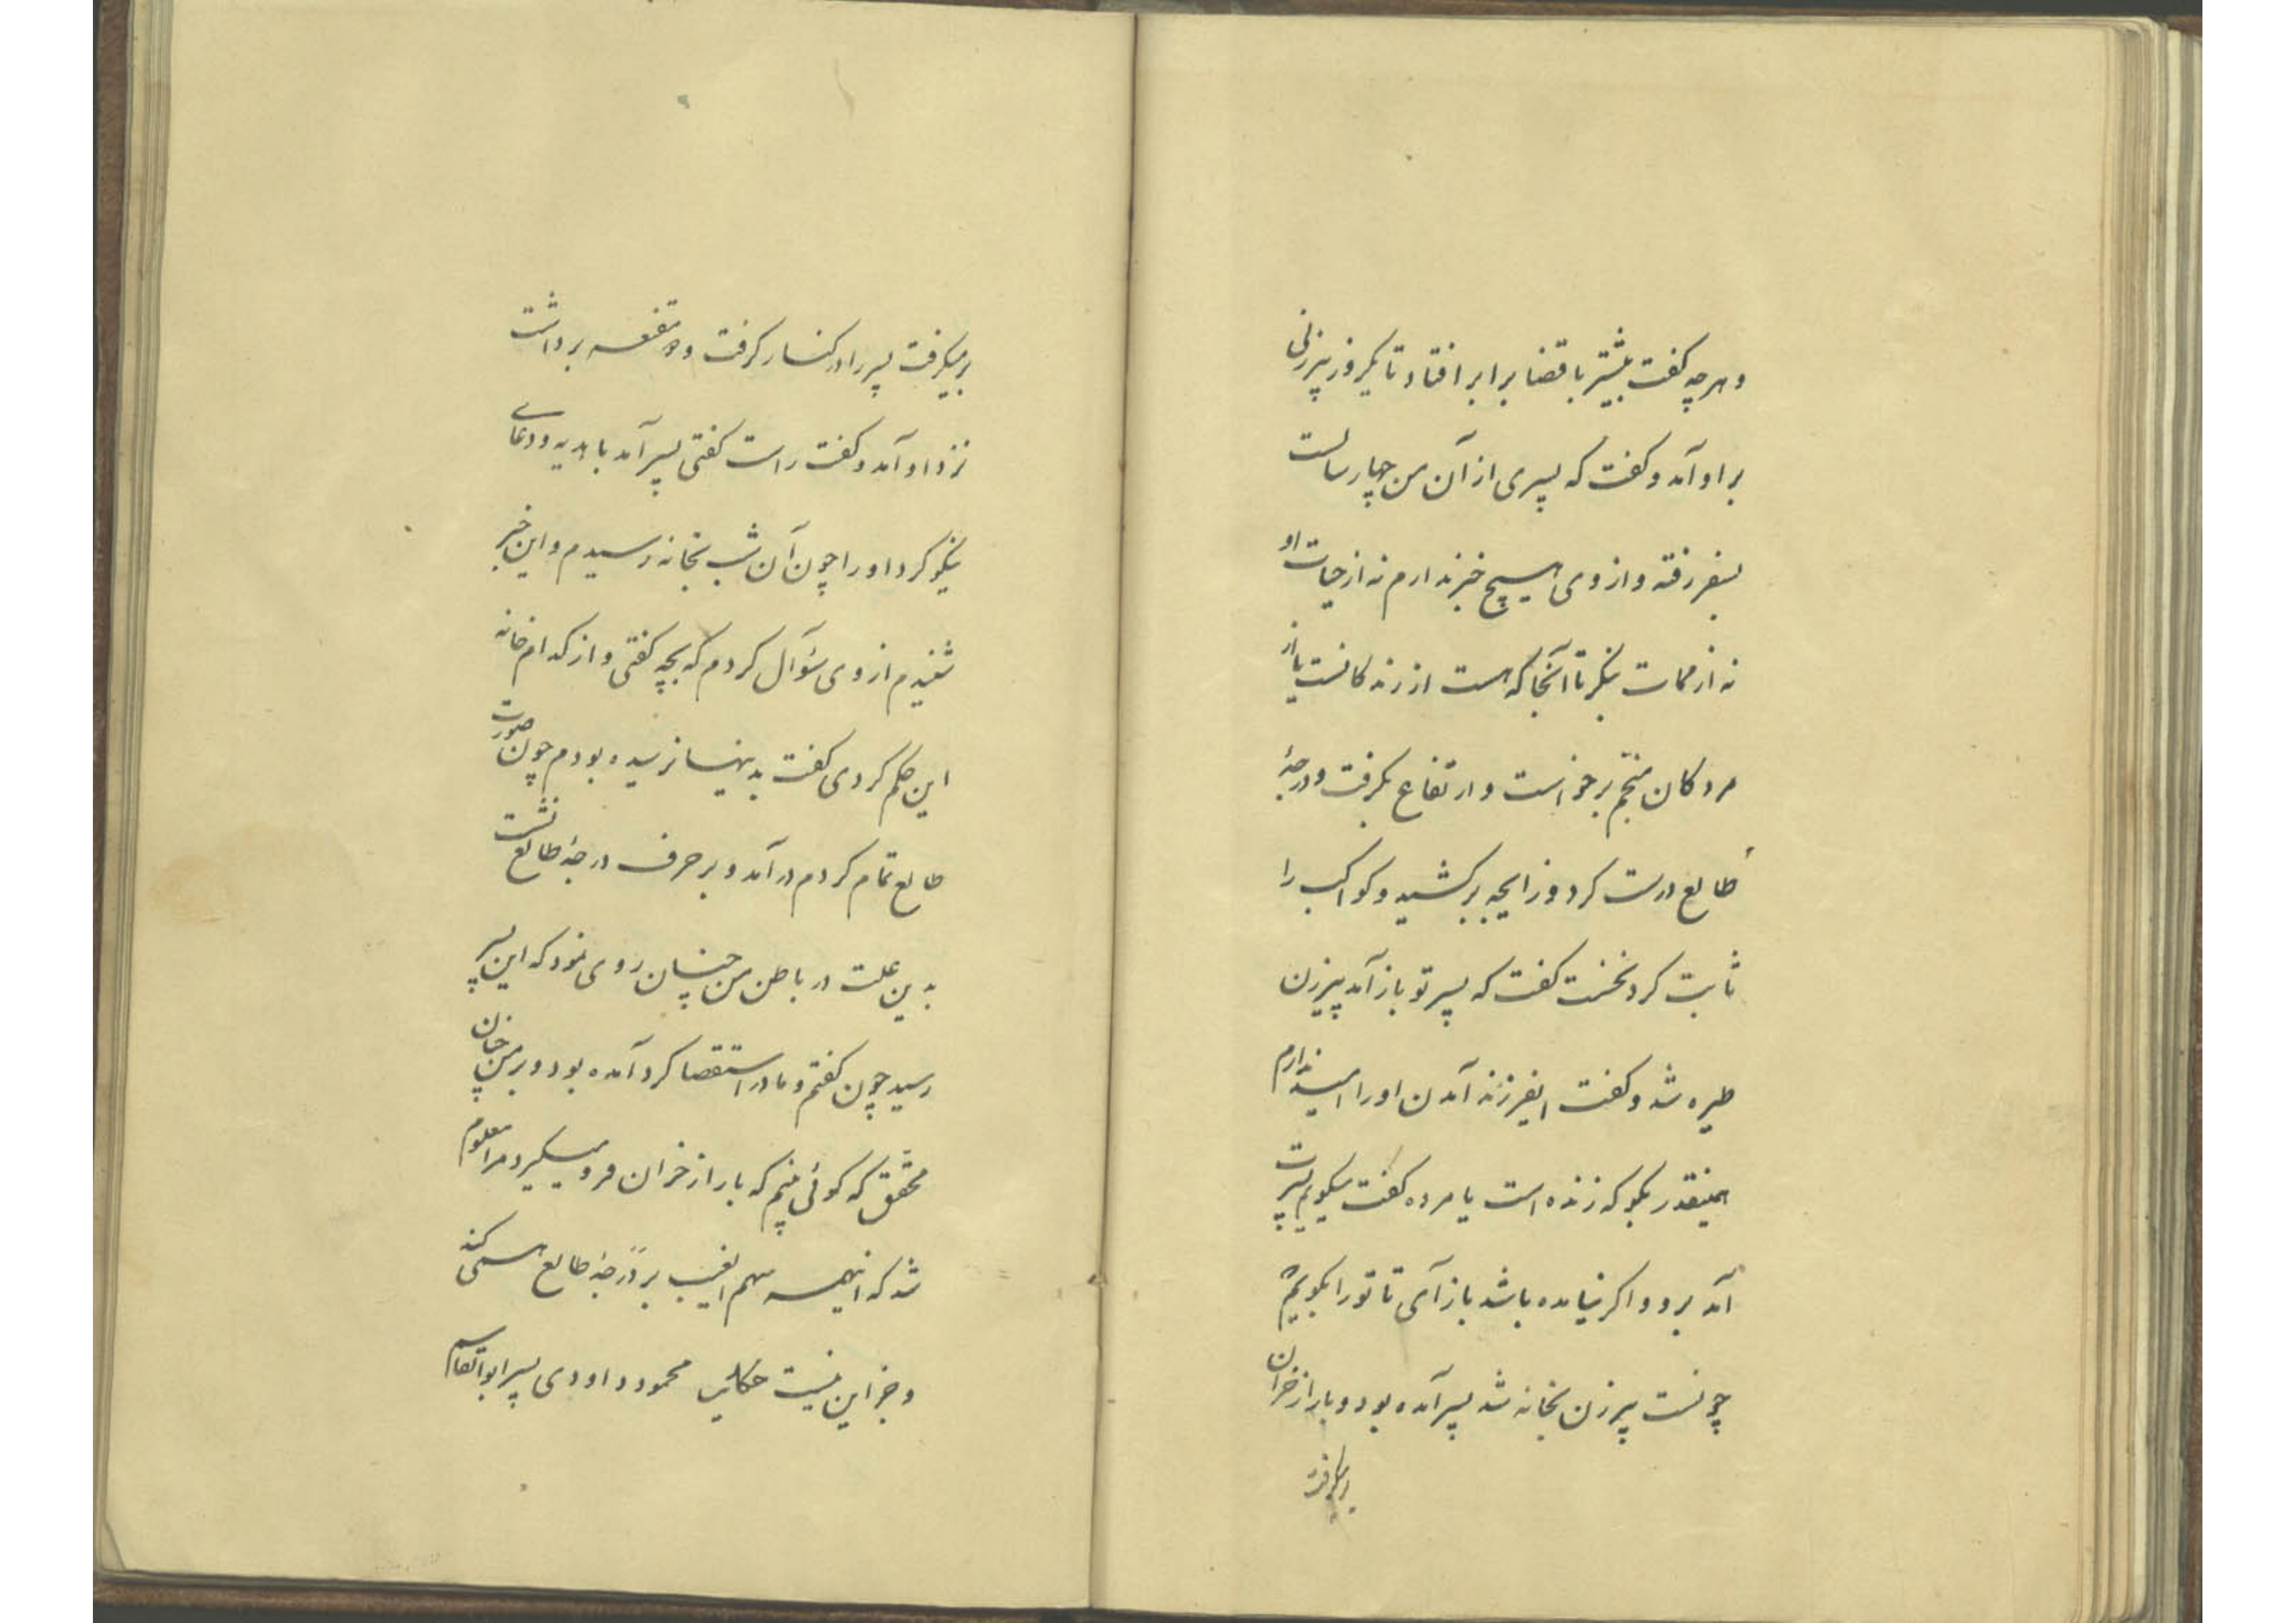 و هرچه گفت بیشتر با قضا برابر افتاد تا یکروز پیرزنی
بر او آمد و گفت که پسری از آن من چهار سالست
بسفر رفته و از وی هیچ خبر ندارم نه از حیات او
نه از ممات بنگر تا آنجا که هست از زندگانست یا از
مردگان منجم برخواست و ارتفاع بگرفت و درجهٔ
طالع درست کرد و زایجه برکشید و کواکب را
ثابت کرد نخست گفت که پسر تو باز آمد پیرزن
طیره شد و گفت ایفرزند آمدن او را امید ندارم
همینقدر بگو که زنده است یا مرده گفت میگویم پسرت
آمد برو و اگر نیامده باشد باز آی تا تو را بگویم
چونست پیرزن بخانه شد پسر آمده بود و بار از خران
برمیگرفت
برمیگرفت پسر را در کنار گرفت و دو مقنعه برداشت
نزد او آمد و گفت راست گفتی پسر آمد با هدیه و دعای
نیکو کرد او را چون آن شب بخانه رسیدم و این خبر
شنیدم از وی سؤال کردم که بچه گفتی و از کدام خانه
این حکم کردی گفت بدینها نرسیده بودم چون صورت
طالع تمام کردم درآمد و بر حرف درجهٔ طالع نشست
بدین علت در باطن من چنان روی نمود که این پسر
رسید چون گفتم و مادر استقصا کرد آمده بود و بر من چنان
محقق که گوئی منم که بار از خران فرو میگیرد مرا معلوم
شد که اینهمه سهم الغیب بر درجهٔ طالع همی کند
و جز این نیست حکایت محمود داودی پسر ابوالقاسم